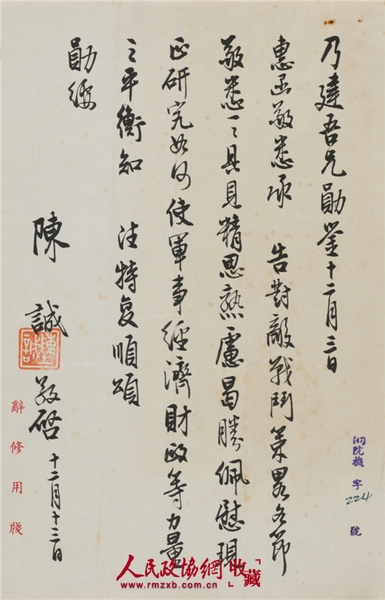 乃建吾兄勛鉴十二月三日
惠函敬悉承 告對敵戰鬥策畧各節
敬悉一一具見精思熟慮曷勝佩慰現
正研究如何使軍事經濟財政等力量
之平衡知 注特复順頌
勛綏
陳誠敬啓十二月十三日
陳誠
辭修用牋
字224號
人民政協網收藏
www.rmzxb.com.cn